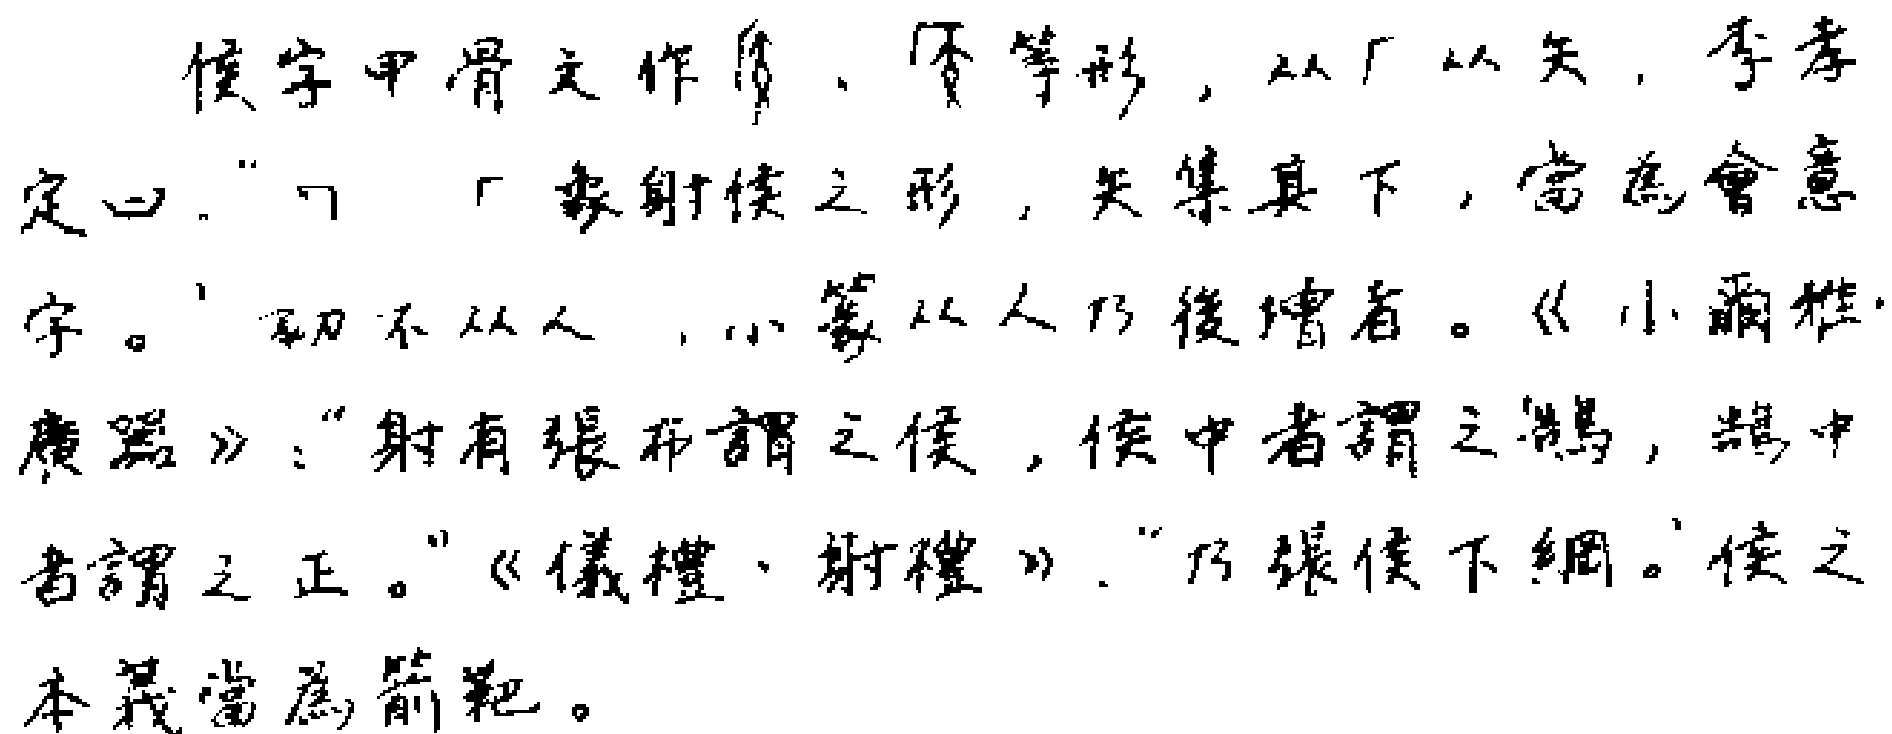 侯字甲骨文作、等形，从厂从矢．李孝
定曰．“ㄱ 厂象射侯之形，矢集其下，當為會意
字。’初不从人，小篆从人乃後增者。《小爾雅·
廣器》：“射有張布謂之侯，侯中者謂之鵠，鵠中
者謂之正。”《儀禮、射禮》．“乃張侯下綱。’侯之
本義當為箭靶。